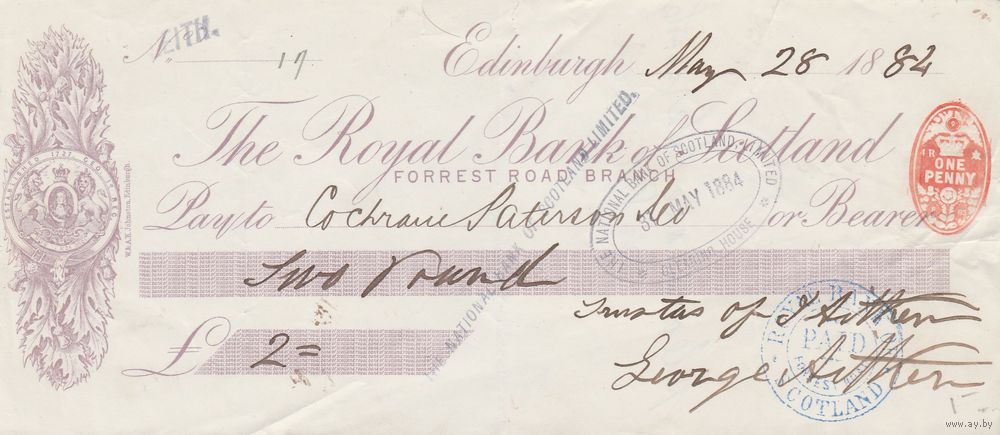 No 17
LEITH.
Edinburgh May 28 1884
The Royal Bank of Scotland
FORREST ROAD BRANCH
Pay to Cochrane Paterson & Co or Bearer
Two Pound
£ 2 =
Trustees of J Aitken
George Aitken
ESTABLISHED 1727. GEO I REG
W. & A.K. Johnston, Edinburgh.
ONE
PENNY
THE NATIONAL BANK OF SCOTLAND LIMITED.
THE NATIONAL BANK OF SCOTLAND LIMITED
MAY 1884
CLEARING HOUSE
ROYAL BANK
PAID
FORREST ROAD
SCOTLAND
www.ay.by